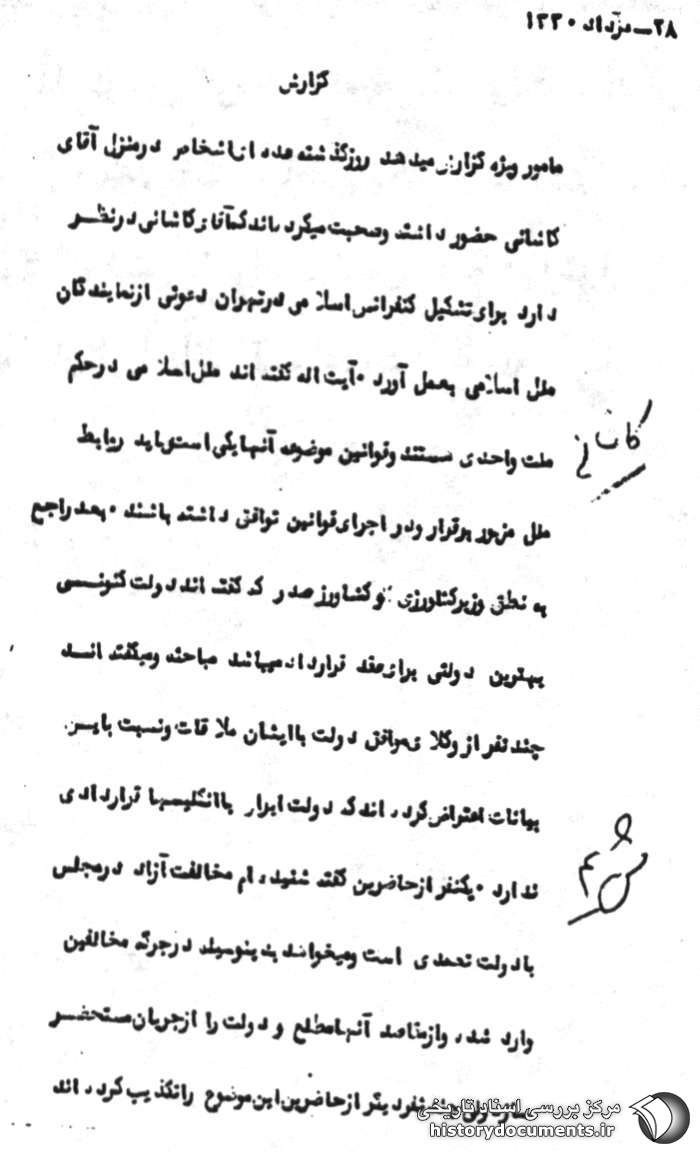 ۲۸ـ مرداد ۱۳۳۰
گزارش
مامور ویژه گزارش میدهد روزگذشته عده ازاشخاص درمنزل آقای
کاشانی حضور داشتند وصحبت میکرده‌اند که آقای کاشانی درنظر
دارد برای تشکیل کنفرانس اسلامی درتهران دعوتی ازنمایندگان
ملل اسلامی بعمل آورد ۰ آیت اله گفته اند ملل اسلامی درحکم
ملت واحدی هستند وقوانین موضوعه آنها یکی است وباید روابط
ملل مزبور برقرار ودر اجرای قوانین توافق داشته باشند ۰ بعد راجع
به نطق وزیرکشاورزی و کشاورز صدر که گفته اند دولت کنونی
بهترین دولتی برای عقد قرارداد میباشد مباحثه ومیگفته اند
چند نفر از وکلا موافق دولت باایشان ملاقات ونسبت باین
بیانات اعتراض کرده اند که دولت ایران باانگلیسها قراردادی
ندارد ۰ یکنفر ازحاضرین گفته شنیده ام مخالفت آزاد درمجلس
بادولت تعمدی است ومیخواهد بدینوسیله درجرگه مخالفین
وارد شده وازمقاصد آنها مطلع و دولت را ازجریان مستحضر
نفردیگر ازحاضرین این موضوع راتکذیب کرده اند
کاشانی
مرکز بررسی اسناد تاریخی
historydocuments.ir